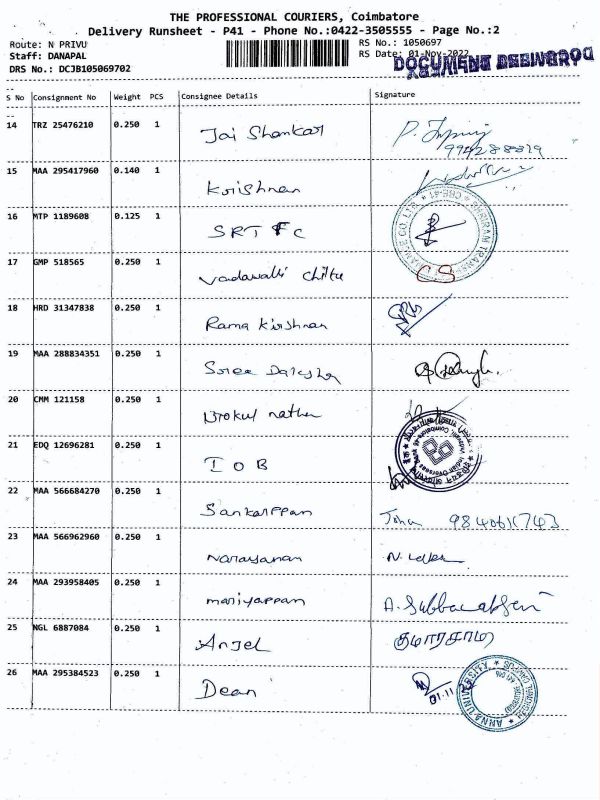 THE PROFESSIONAL COURIERS, Coimbatore
Delivery Runsheet - P41 - Phone No.:0422-3505555 - Page No.:2
Route: N PRIVU
RS No.: 1050697
Staff: DANAPAL
RS Date: 01-Nov-2022
DRS No.: DCJB105069702
S No Consignment No Weight PCS Consignee Details Signature
14 TRZ 25476210 0.250 1 Jai Shankar
15 MAA 295417960 0.140 1 Krishnan
16 MTP 1189608 0.125 1 SRT FC
17 GMP 518565 0.250 1 Vadavalli CS
18 HRD 31347838 0.250 1 Rama Kirshnan
19 MAA 288834351 0.250 1 Sree
20 CMM 121158 0.250 1 nathan
21 EDQ 12696281 0.250 1 IOB
22 MAA 566684270 0.250 1 Sankarppan John
23 MAA 566962960 0.250 1 Narayanan N.
24 MAA 293958405 0.250 1 mariyappan A.
25 NGL 6887084 0.250 1 Angel குமாரசாமி
26 MAA 295384523 0.250 1 Dean 01.11
ANNA UNIVERSITY